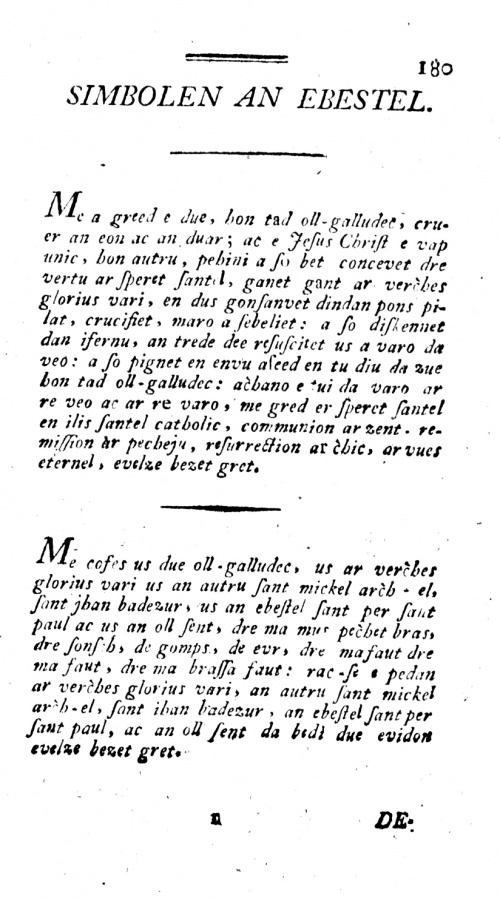 180
SIMBOLEN AN EBESTEL.
Me a greed e due, hon tad oll-galludec, cru-
er an eon ac an duar; ac e Jeſus Chriſt e vap
unic, hon autru, pehini a ſo bet concevet dre
vertu ar ſperet ſantel, ganet gant ar verc̀hes
glorius vari, en dus gonſanvet dindan pons pi-
lat, crucifiet, maro a ſebeliet: a ſo diſkennet
dan ifernu, an trede dee reſuſcitet us a varo da
veo: a ſo pignet en envu aſeed en tu diu da zue
hon tad oll-galludec: ac̀hano e tui da varo ar
re veo ac ar re varo, me gred er ſperet ſantel
en ilis ſantel catholic, communion ar zent. re-
miſſion ar pecheju, reſurrection ar c̀hic, ar vues
eternel, evelze bezet gret.
Me cofes us due oll-galludec, us ar verc̀hes
glorius vari us an autru ſant mickel arc̀h-el,
ſant jhan badezur, us an ebeſtel ſant per ſant
paul ac us an oll ſent, dre ma mus pec̀het bras,
dre ſonſ-h, de gomps, de evr, dre ma faut dre
ma faut, dre ma braſſa faut: rac-ſe e pedan
ar verc̀hes glorius vari, an autru ſant mickel
arc̀h-el, ſant ihan badezur, an ebeſtel ſant per
ſant paul, ac an oll ſent da bedi due evidon
evelze bezet gret.
n DE-